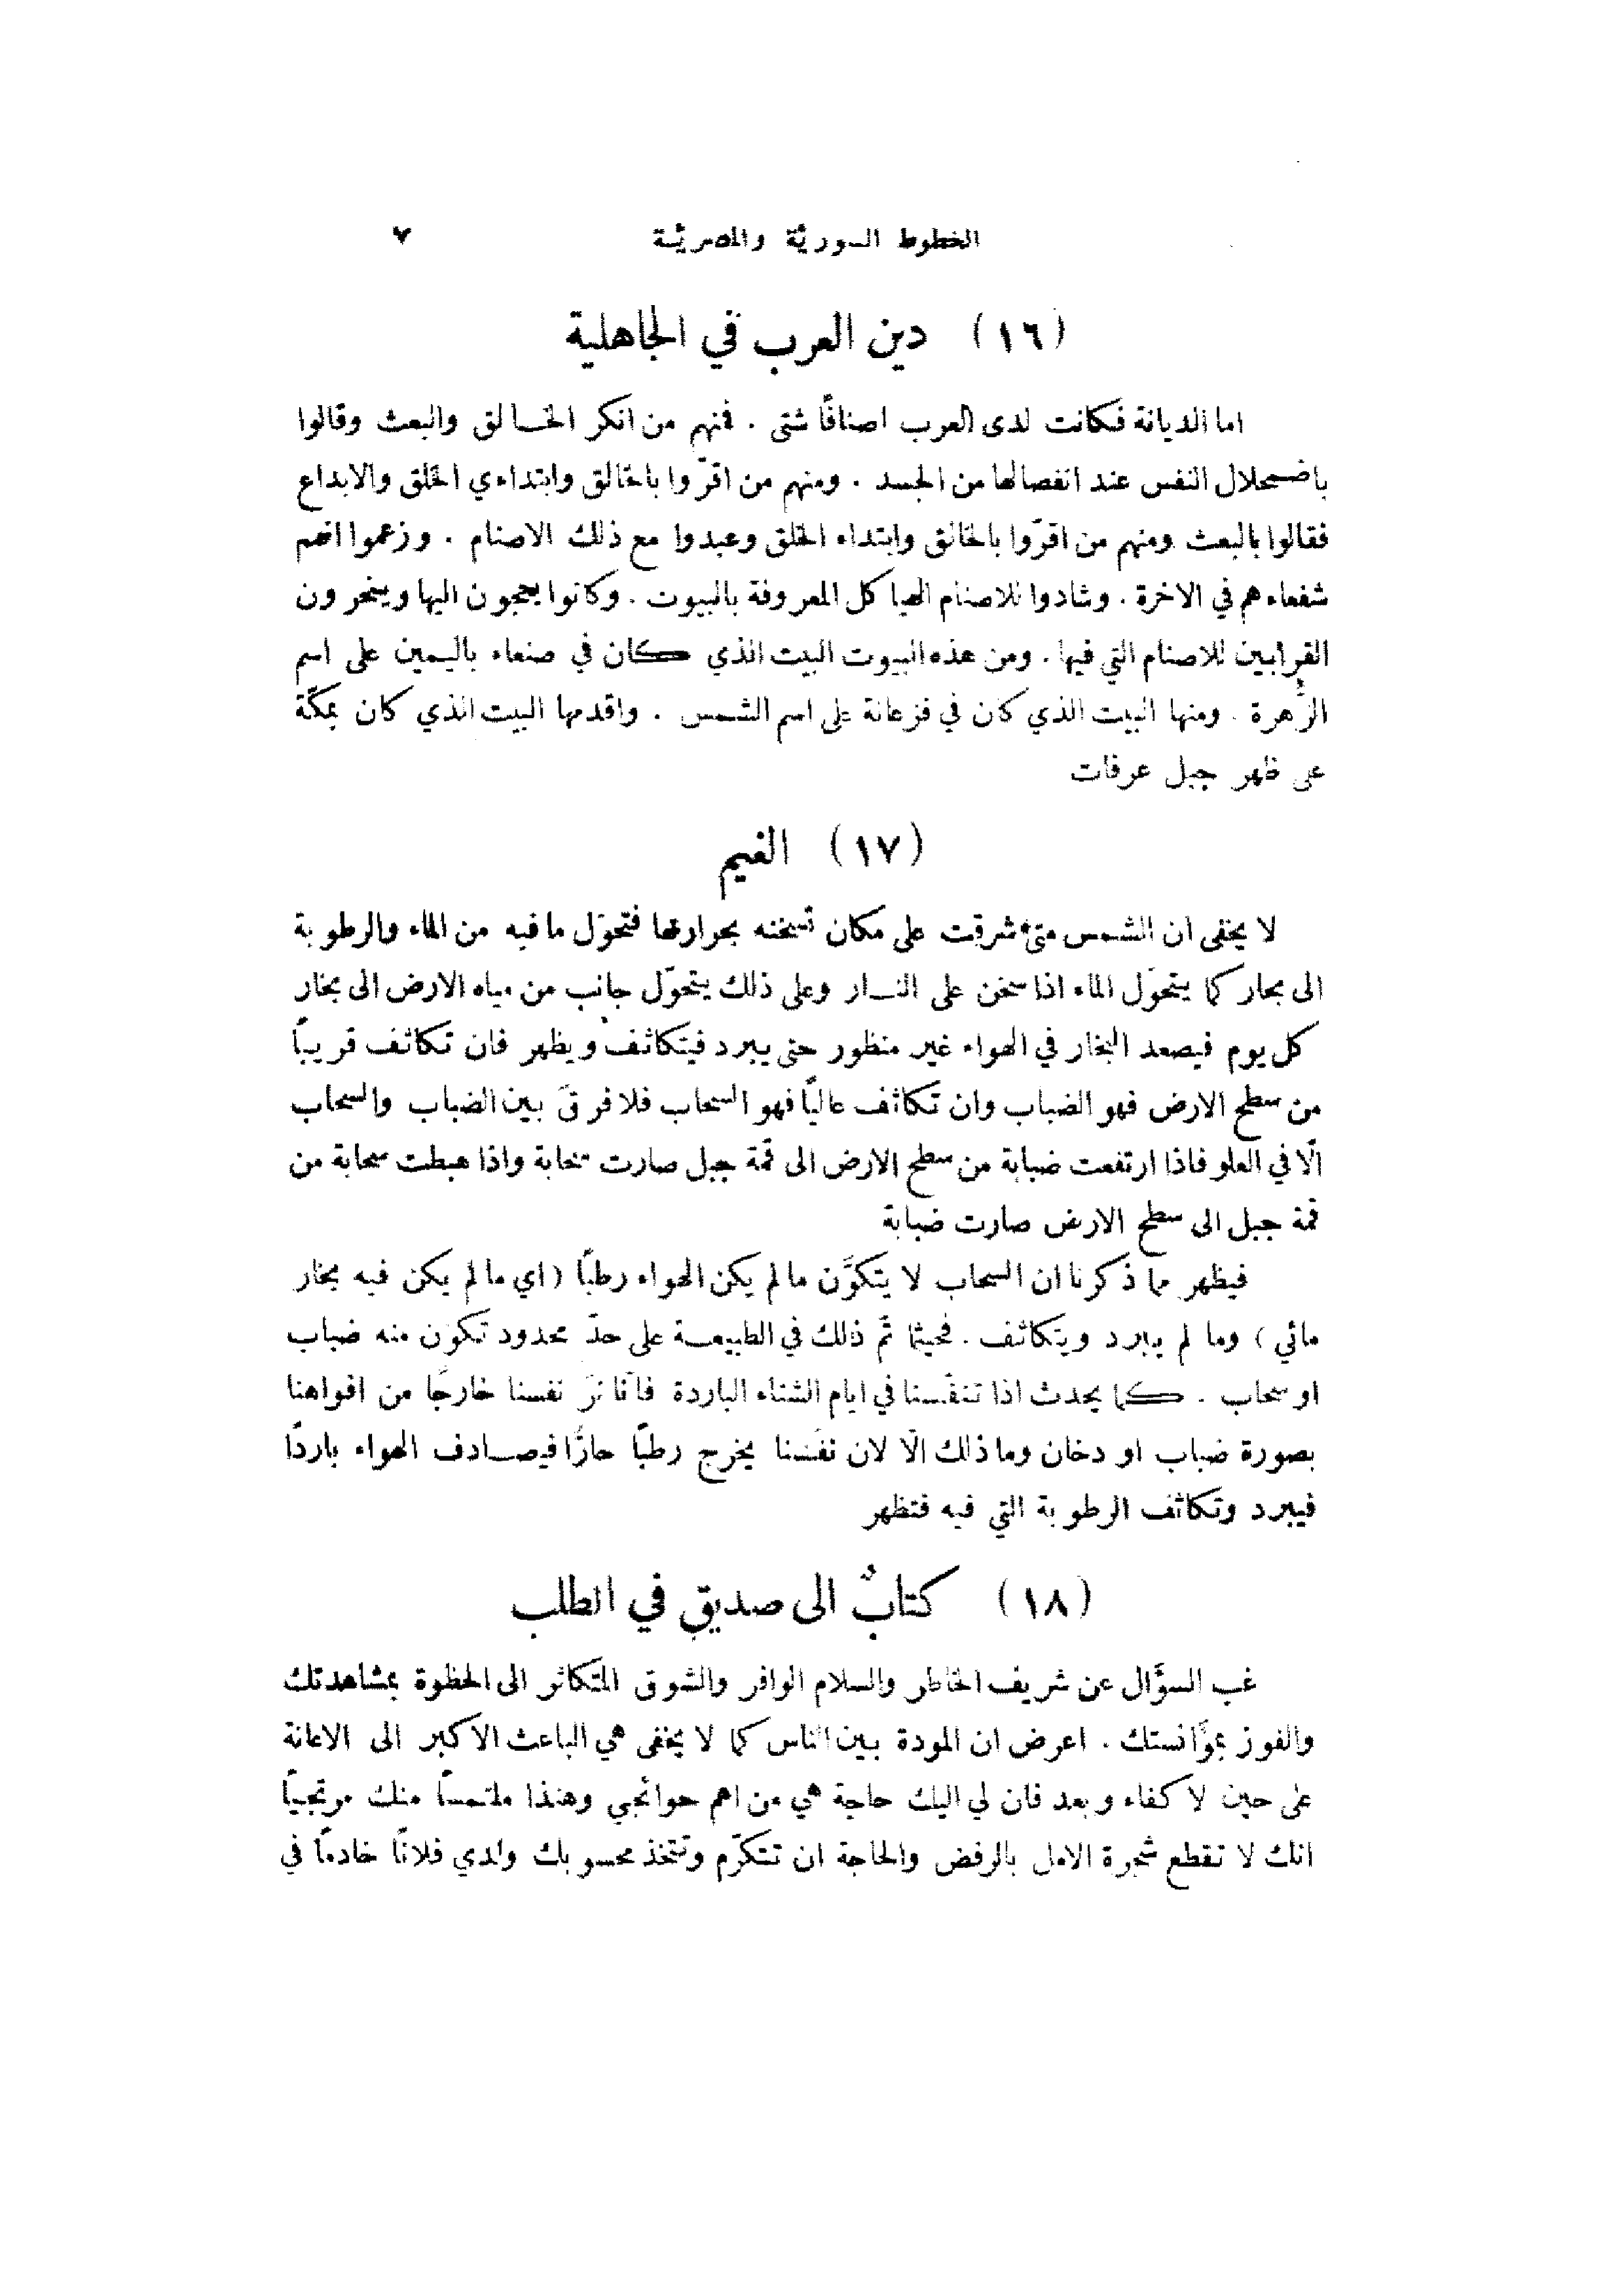 الخطوط السورية والمصرية ٧
(١٦) دين العرب في الجاهلية
اما الديانة فكانت لدى العرب اصنافًا شتى . فمنهم من انكر الخالق والبعث وقالوا
باضمحلال النفس عند انفصالها من الجسد . ومنهم من اقرّوا بالخالق وابتداءي الخلق والابداع
فقالوا بالبعث ومنهم من اقرّوا بالخالق وابتداء الخلق وعبدوا مع ذلك الاصنام . وزعموا انهم
شفعاءهم في الاخرة . وشادوا للاصنام الهياكل المعروفة بالبيوت . وكانوا يحجون اليها وينحرون
القرابين للاصنام التي فيها . ومن هذه البيوت البيت الذي كان في صنعاء باليمين على اسم
الزُّهرة . ومنها البيت الذي كان في فزعانة على اسم الشمس . واقدمها البيت الذي كان بمكّة
على ظهر جبل عرفات
(١٧) الغيم
لا يخفى ان الشمس متى شرقت على مكان تسخنه بحرارتها فتحوّل ما فيه من الماء والرطوبة
الى بخار كما يتحوّل الماء اذا سخن على النار وعلى ذلك يتحوّل جانب من مياه الارض الى بخار
كل يوم فيصعد البخار في الهواء غير منظور حتى يبرد فيتكاثف ويظهر فان تكاثف قريبًا
من سطح الارض فهو الضباب وان تكاثف عاليًا فهو السحاب فلا فرق بين الضباب والسحاب
الّا في العلو فاذا ارتفعت ضبابة من سطح الارض الى قمة جبل صارت سحابة واذا هبطت سحابة من
قمة جبل الى سطح الارض صارت ضبابة
فيظهر مما ذكرنا ان السحاب لا يتكوَّن ما لم يكن الهواء رطبًا (اي ما لم يكن فيه بخار
مائي) وما لم يبرد ويتكاثف . فحيثما تمّ ذلك في الطبيعة على حدّ محدود تكوّن منه ضباب
او سحاب . كما يحدث اذا تنفّسنا في ايام الشتاء الباردة فانّا نرَ نفسنا خارجًا من افواهنا
بصورة ضباب او دخان وما ذلك الّا لان نفَسنا يخرج رطبًا حارًّا فيصادف الهواء باردًا
فيبرد وتكاثف الرطوبة التي فيه فتظهر
(١٨) كتابٌ الى صديق في الطلب
غب السؤَّال عن شريف الخاطر والسلام الوافر والشوق المتكاثر الى الحظوة بمشاهدتك
والفوز بمؤَانستك . اعرض ان المودة بين الناس كما لا يخفى هي الباعث الاكبر الى الاعانة
على حين لا كفاء وبعد فان لي اليك حاجة هي من اهم حوائجي وهنذا ملتمسًا منك مرتجيًا
انك لا تقطع شجرة الامل بالرفض والحاجة ان تتكرّم وتتخذ محسوبك ولدي فلانًا خادمًا في